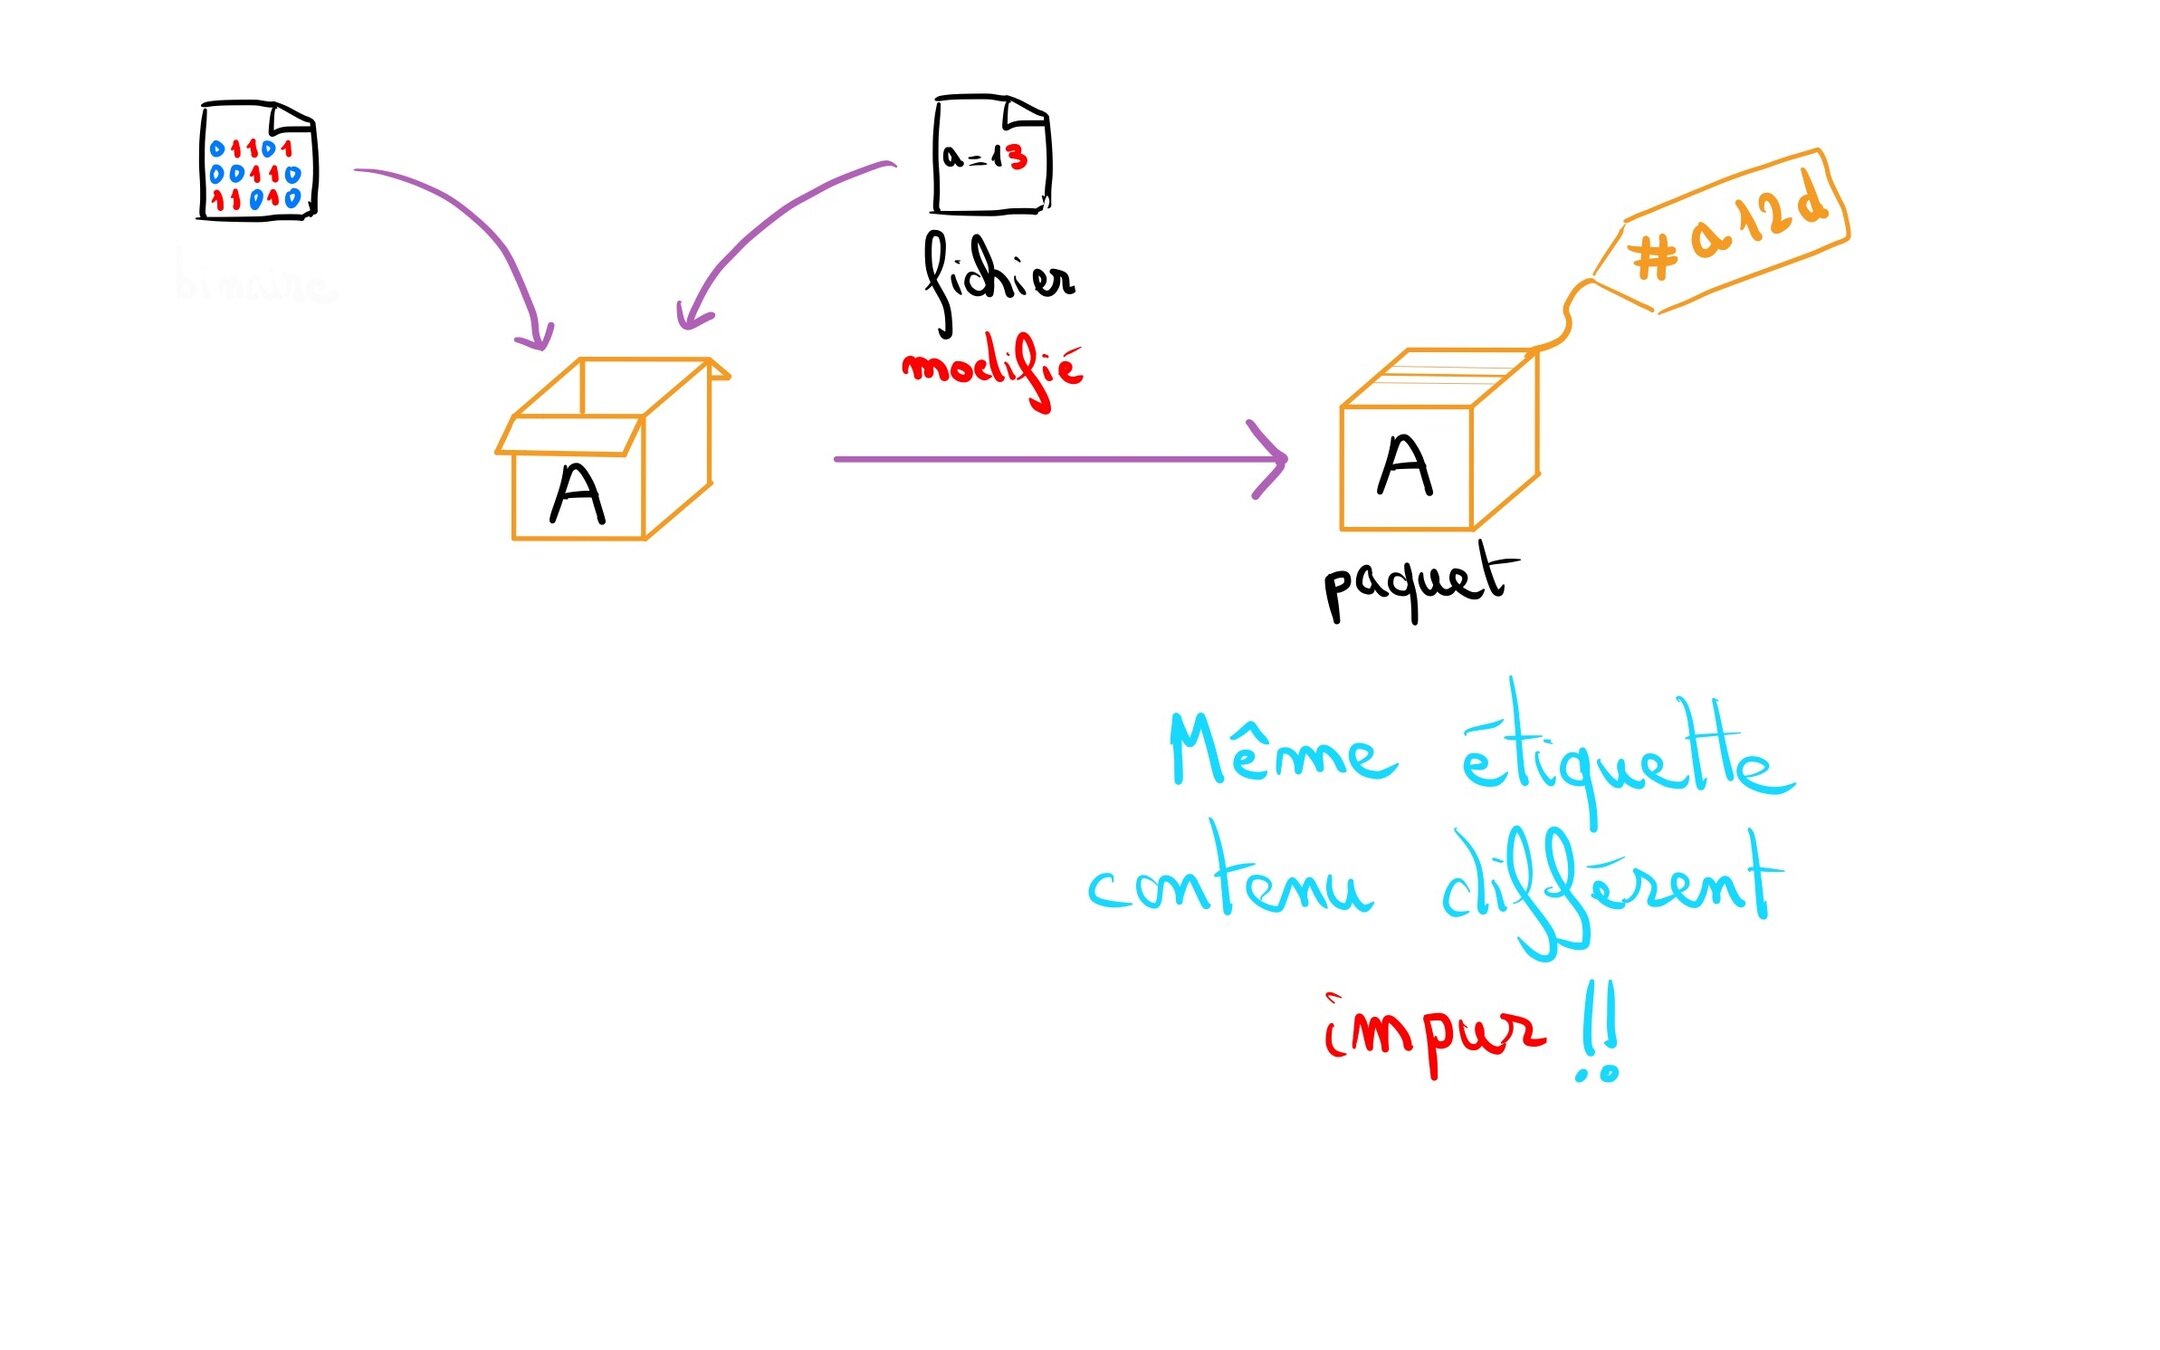 01101
00110
11010
binaire
a=13
fichier
modifié
#a12d
A
A
paquet
Même étiquette
contenu différent
impur !!